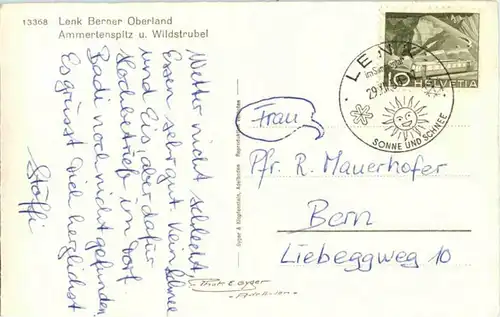 13368 Lenk Berner Oberland
Ammertenspitz u. Wildstrubel
Wetter nicht schlecht,
Essen sehr gut. Kein Schnee
und Eis, aber dafür
Hochbetrieb im Dorf
Badi noch nicht gefunden
Es grüsst Dich herzlichst
Stöffi
LENK
im Simmental
SONNE UND SCHNEE
10 HELVETIA
Frau
Pfr. R. Mauerhofer
Bern
Liebeggweg 10
Photo E. Gyger